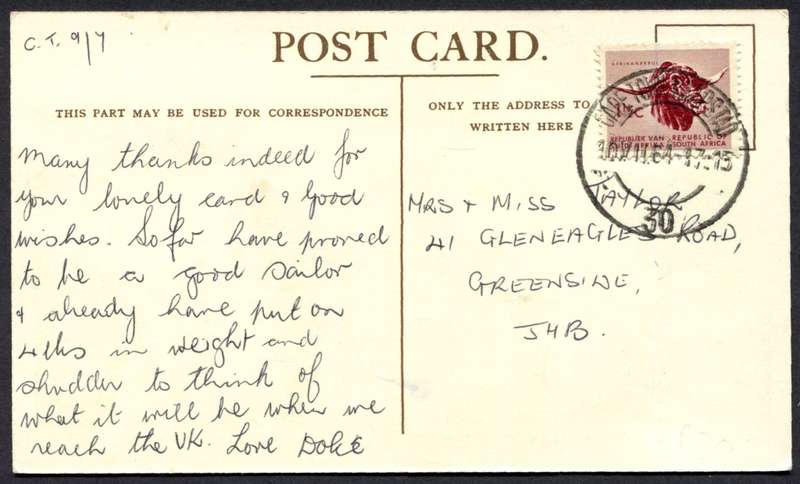 C.T. 9/7
POST CARD.
THIS PART MAY BE USED FOR CORRESPONDENCE
Many thanks indeed for
your lonely card & Good
wishes. So far have proved
to be a good sailor
& already have put on
4 lbs in weight and
shudder to think of
what it will be when we
reach the UK. Love
ONLY THE ADDRESS TO
WRITTEN HERE
AFRIKANERBUL
½C
REPUBLIEK VAN REPUBLIC OF
SOUTH AFRICA
10 VII 64
30
MRS + MISS TAYLOR
41 GLENEAGLES ROAD,
GREENSIDE,
JHB.